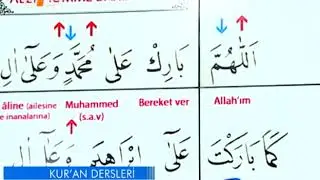 اَللّٰهُمَّ بَارِكْ عَلٰى مُحَمَّدٍ وَعَلٰٓى اٰلِ
âline (ailesine Muhammed Bereket ver Allah'ım
e inananlarına) (s.a.v)
كَمَا بَارَكْتَ عَلٰٓى اِبْرَاهِيمَ وَعَلٰٓى
KUR'AN DERSLERİ